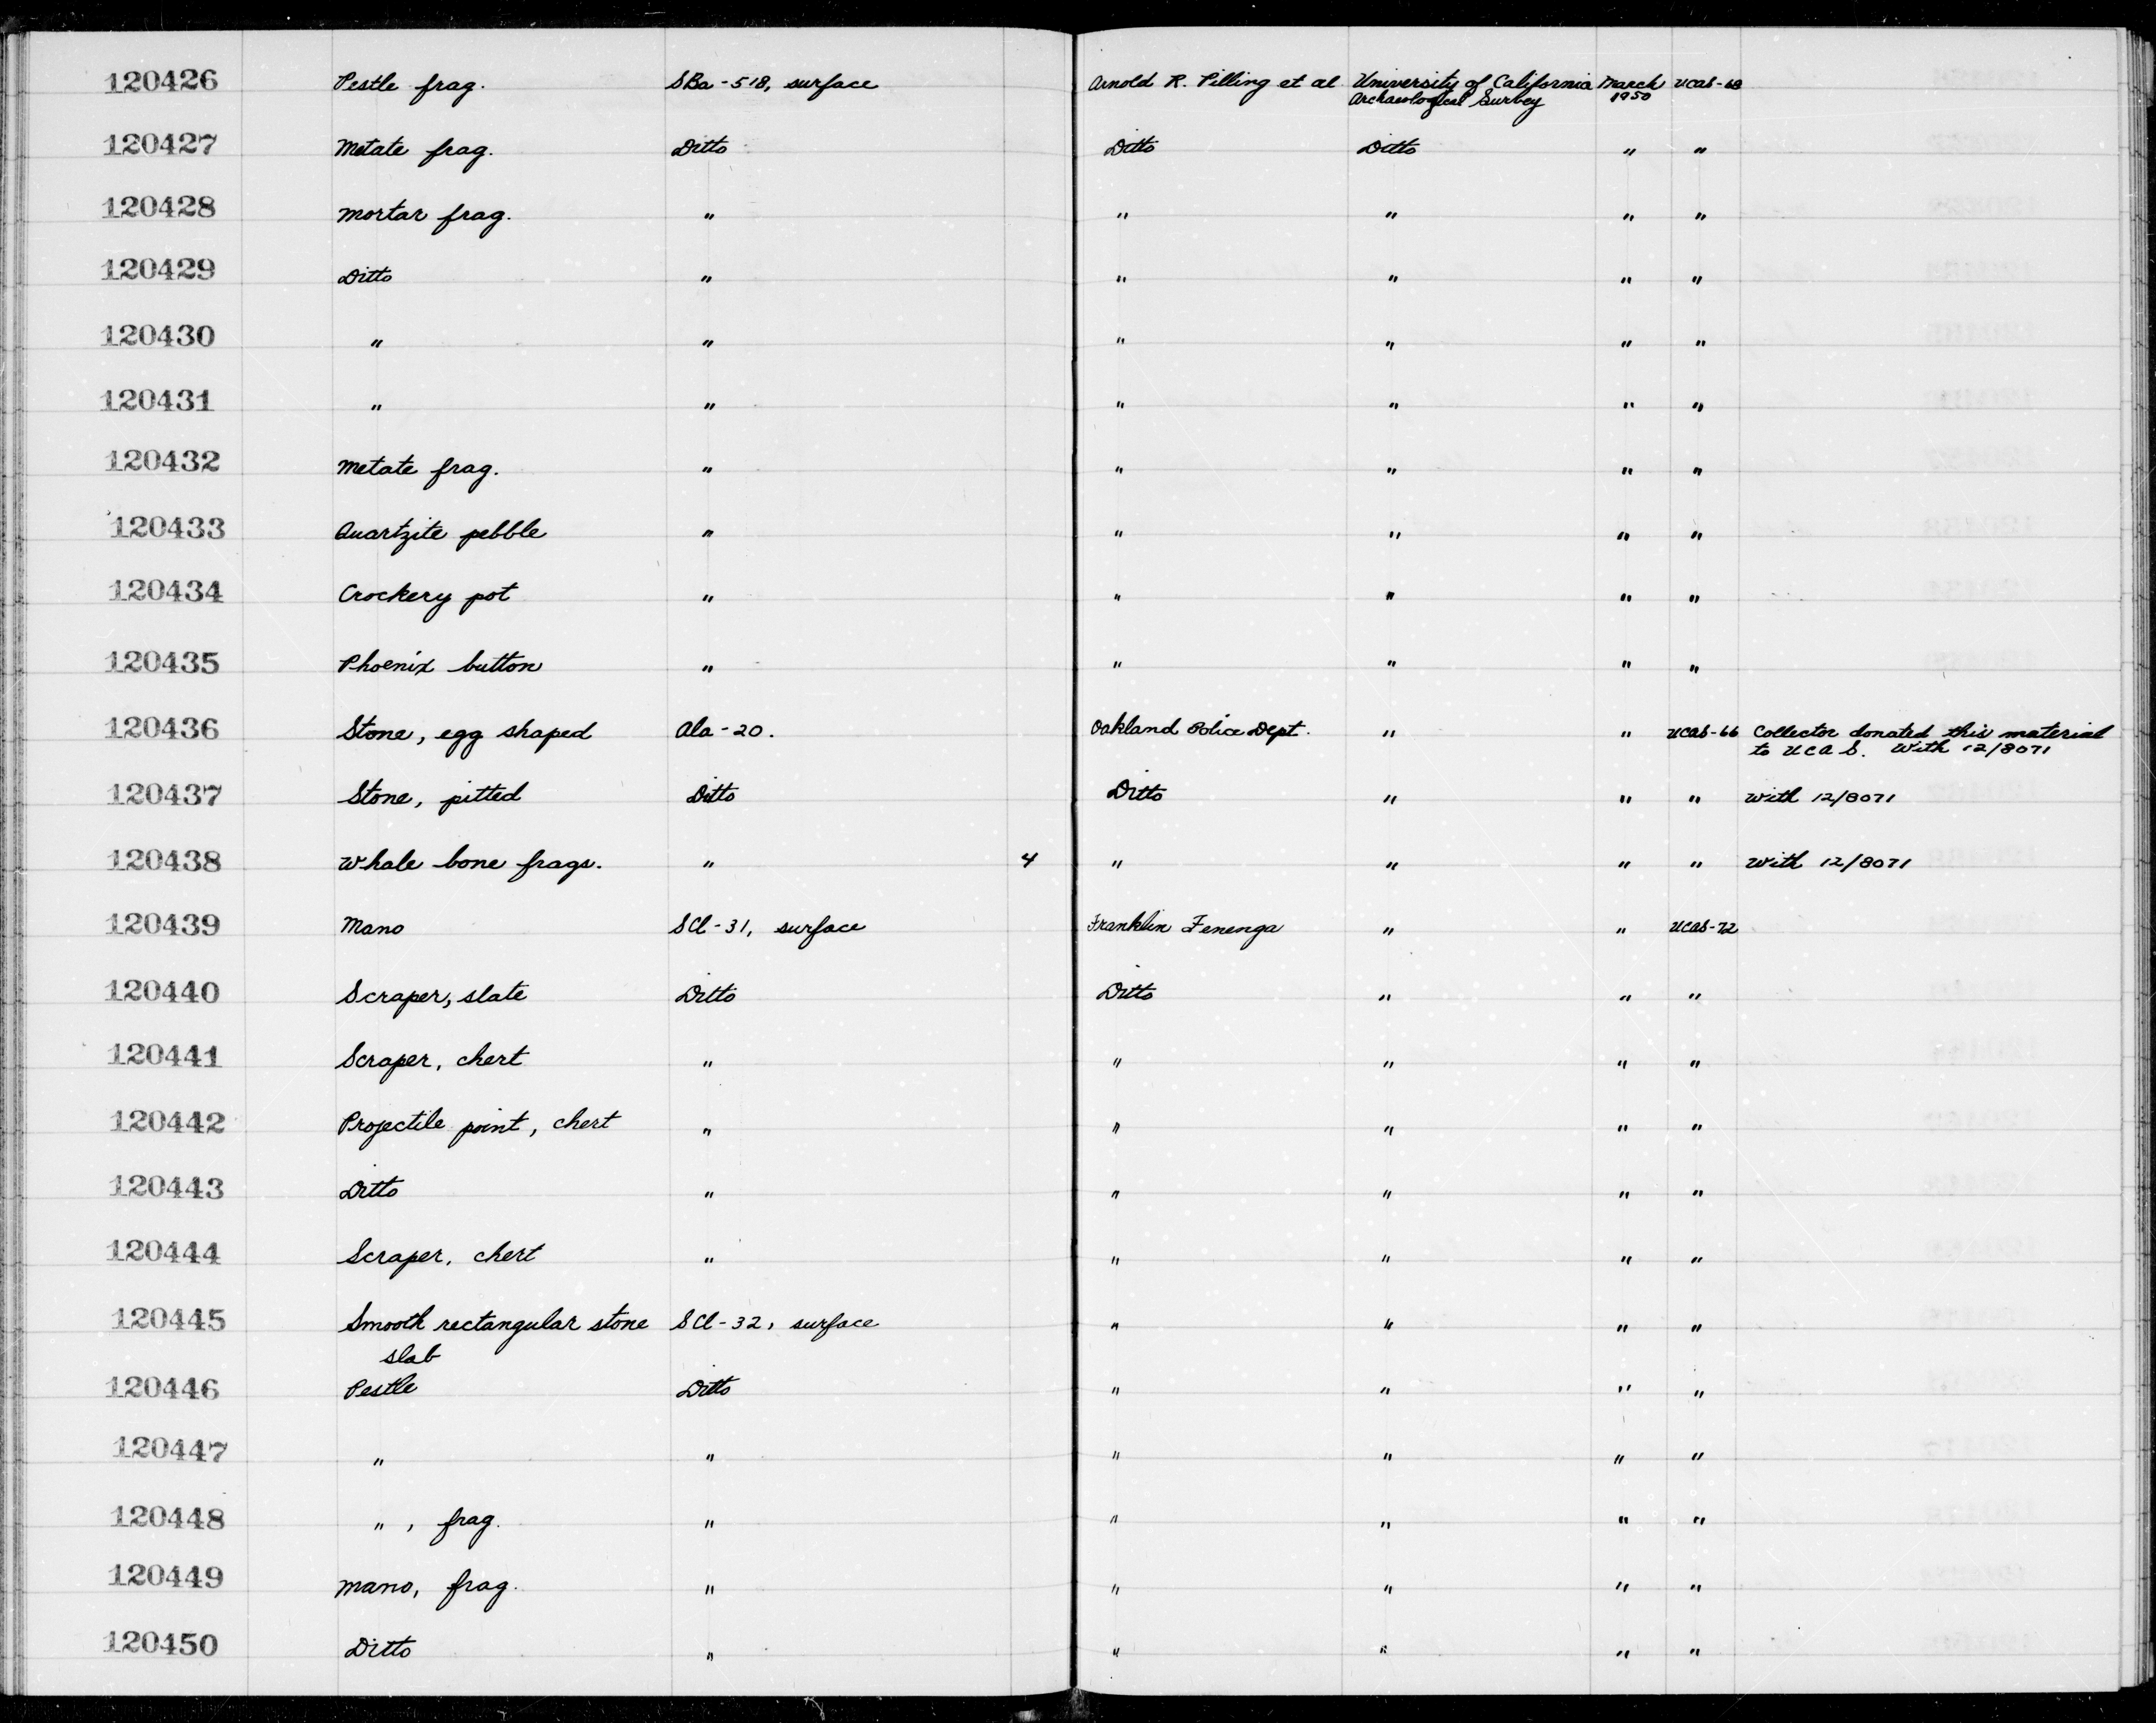 120426 Pestle frag. SBa-518, surface Arnold R. Pilling et al University of California March UCAS-68
Archaeological Survey 1950
120427 Metate frag. Ditto Ditto Ditto " "
120428 Mortar frag. " " " " "
120429 Ditto " " " " "
120430 " " " " " "
120431 " " " " " "
120432 Metate frag. " " " " "
120433 Quartzite pebble " " " " "
120434 Crockery pot " " " " "
120435 Phoenix button " " " " "
120436 Stone, egg shaped Ala-20. Oakland Police Dept. " " UCAS-66 Collector donated this material
to UCAS. With 12/8071
120437 Stone, pitted Ditto Ditto " " " With 12/8071
120438 Whale bone frags. " 4 " " " " With 12/8071
120439 Mano SCl-31, surface Franklin Fenenga " " UCAS-72
120440 Scraper, slate Ditto Ditto " " "
120441 Scraper, chert " " " " "
120442 Projectile point, chert " " " " "
120443 Ditto " " " " "
120444 Scraper, chert " " " " "
120445 Smooth rectangular stone SCl-32, surface " " " "
slab
120446 Pestle Ditto " " " "
120447 " " " " " "
120448 ", frag. " " " " "
120449 Mano, frag. " " " " "
120450 Ditto " " " " "